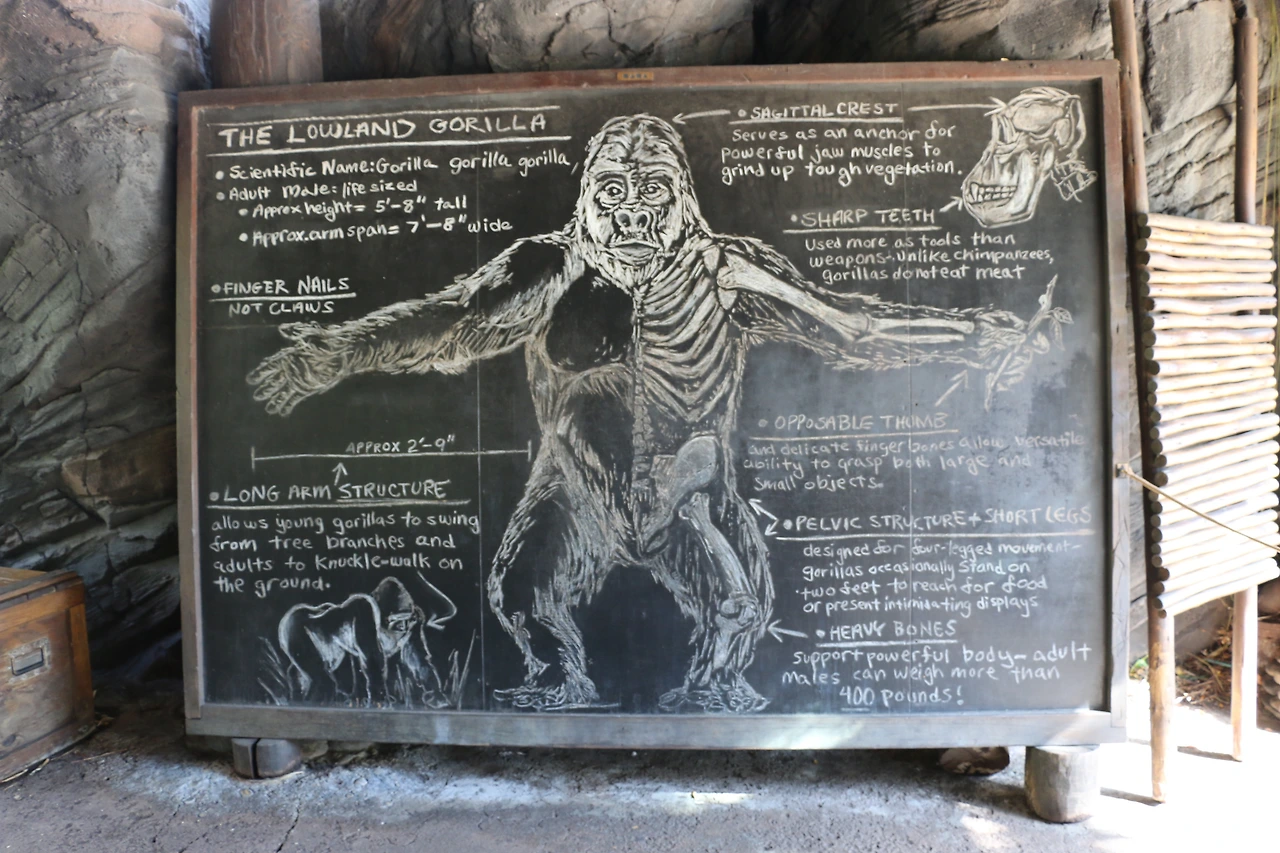 THE LOWLAND GORILLA
• Scientific Name: Gorilla gorilla gorilla
• Adult Male: life sized
• Approx height = 5'-8" tall
• Approx. arm span = 7'-8" wide
• FINGER NAILS
NOT CLAWS
APPROX 2'-9"
• LONG ARM STRUCTURE
allows young gorillas to swing
from tree branches and
adults to knuckle-walk on
the ground.
• SAGITTAL CREST
Serves as an anchor for
powerful jaw muscles to
grind up tough vegetation.
• SHARP TEETH
Used more as tools than
weapons-unlike chimpanzees,
gorillas do not eat meat
• OPPOSABLE THUMB
and delicate finger bones allow versatile
ability to grasp both large and
small objects.
• PELVIC STRUCTURE + SHORT LEGS
designed for four-legged movement-
gorillas occasionally stand on
two feet to reach for food
or present intimidating displays
• HEAVY BONES
support powerful body- adult
males can weigh more than
400 pounds!